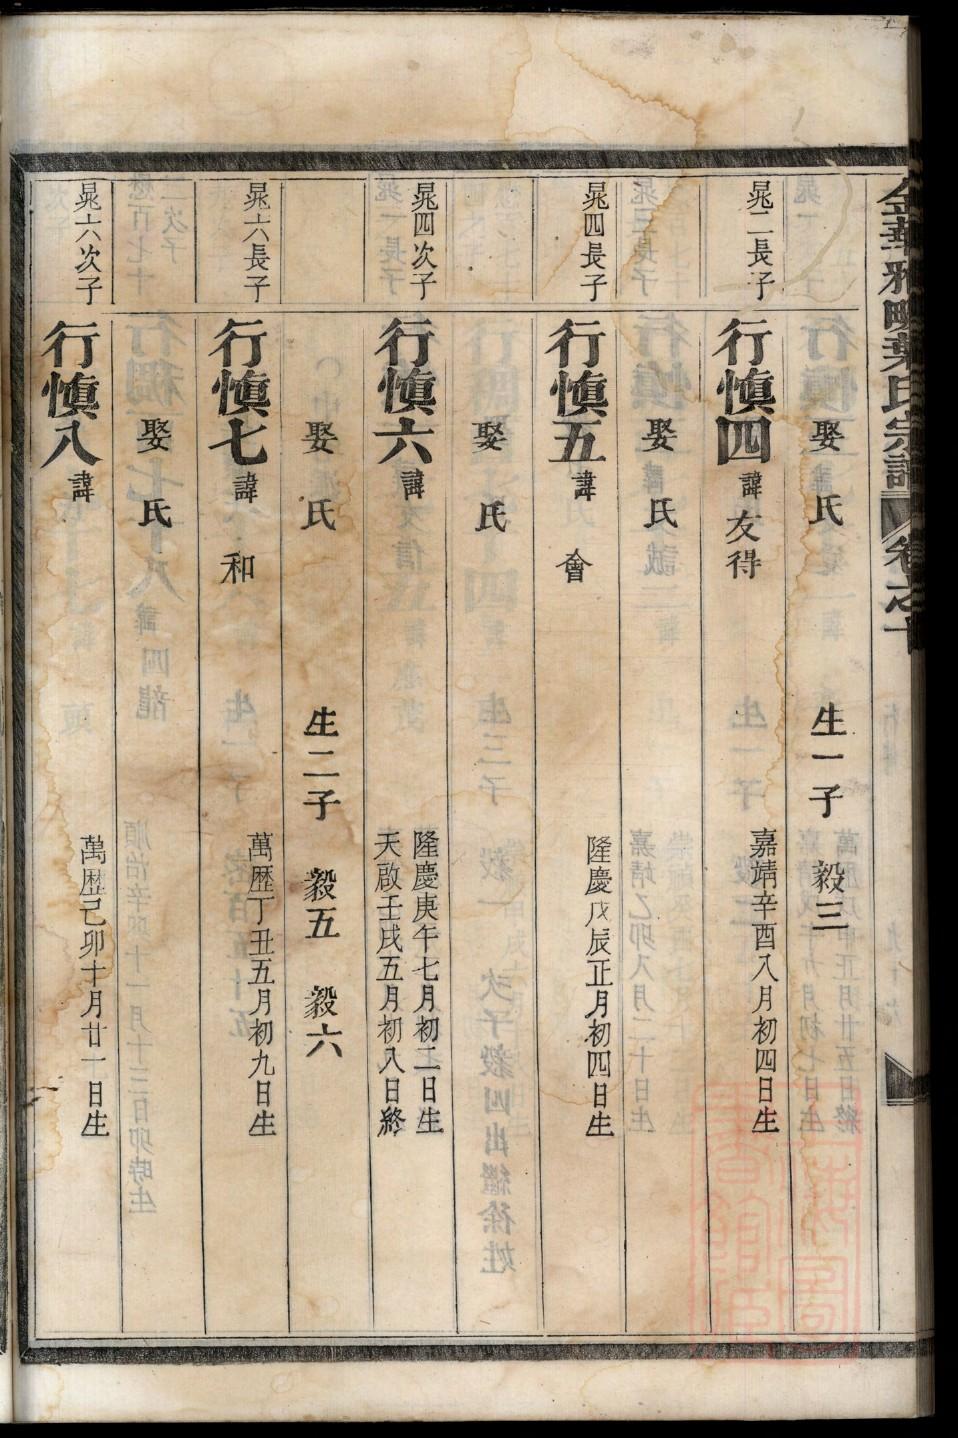 金華雅畈葉氏宗譜 卷之
娶 氏 生一子 毅三
晁二長子 行慎四 諱友得 嘉靖辛酉八月初四日生
娶 氏
晁四長子 行慎五 諱 會 隆慶戊辰正月初四日生
娶 氏
晁四次子 行慎六 諱 隆慶庚午七月初二日生
天啟壬戌五月初八日終
娶 氏 生二子 毅五 毅六
晁六長子 行慎七 諱 和 萬歷丁丑五月初九日生
娶 氏
晁六次子 行慎八 諱 萬歷己卯十月廿一日生